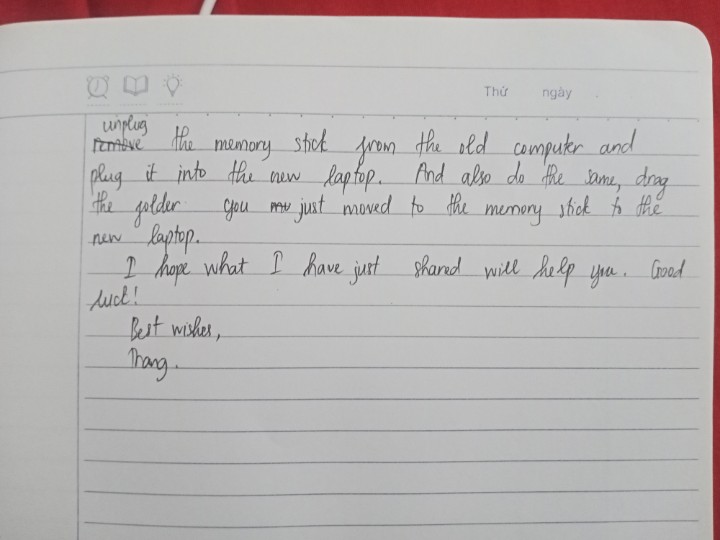 Thứ ngày
unplug
remove the memory stick from the old computer and
plug it into the new laptop. And also do the same, drag
the folder you just moved to the memory stick to the
new laptop.
I hope what I have just shared will help you. Good
luck!
Best wishes,
Thang.